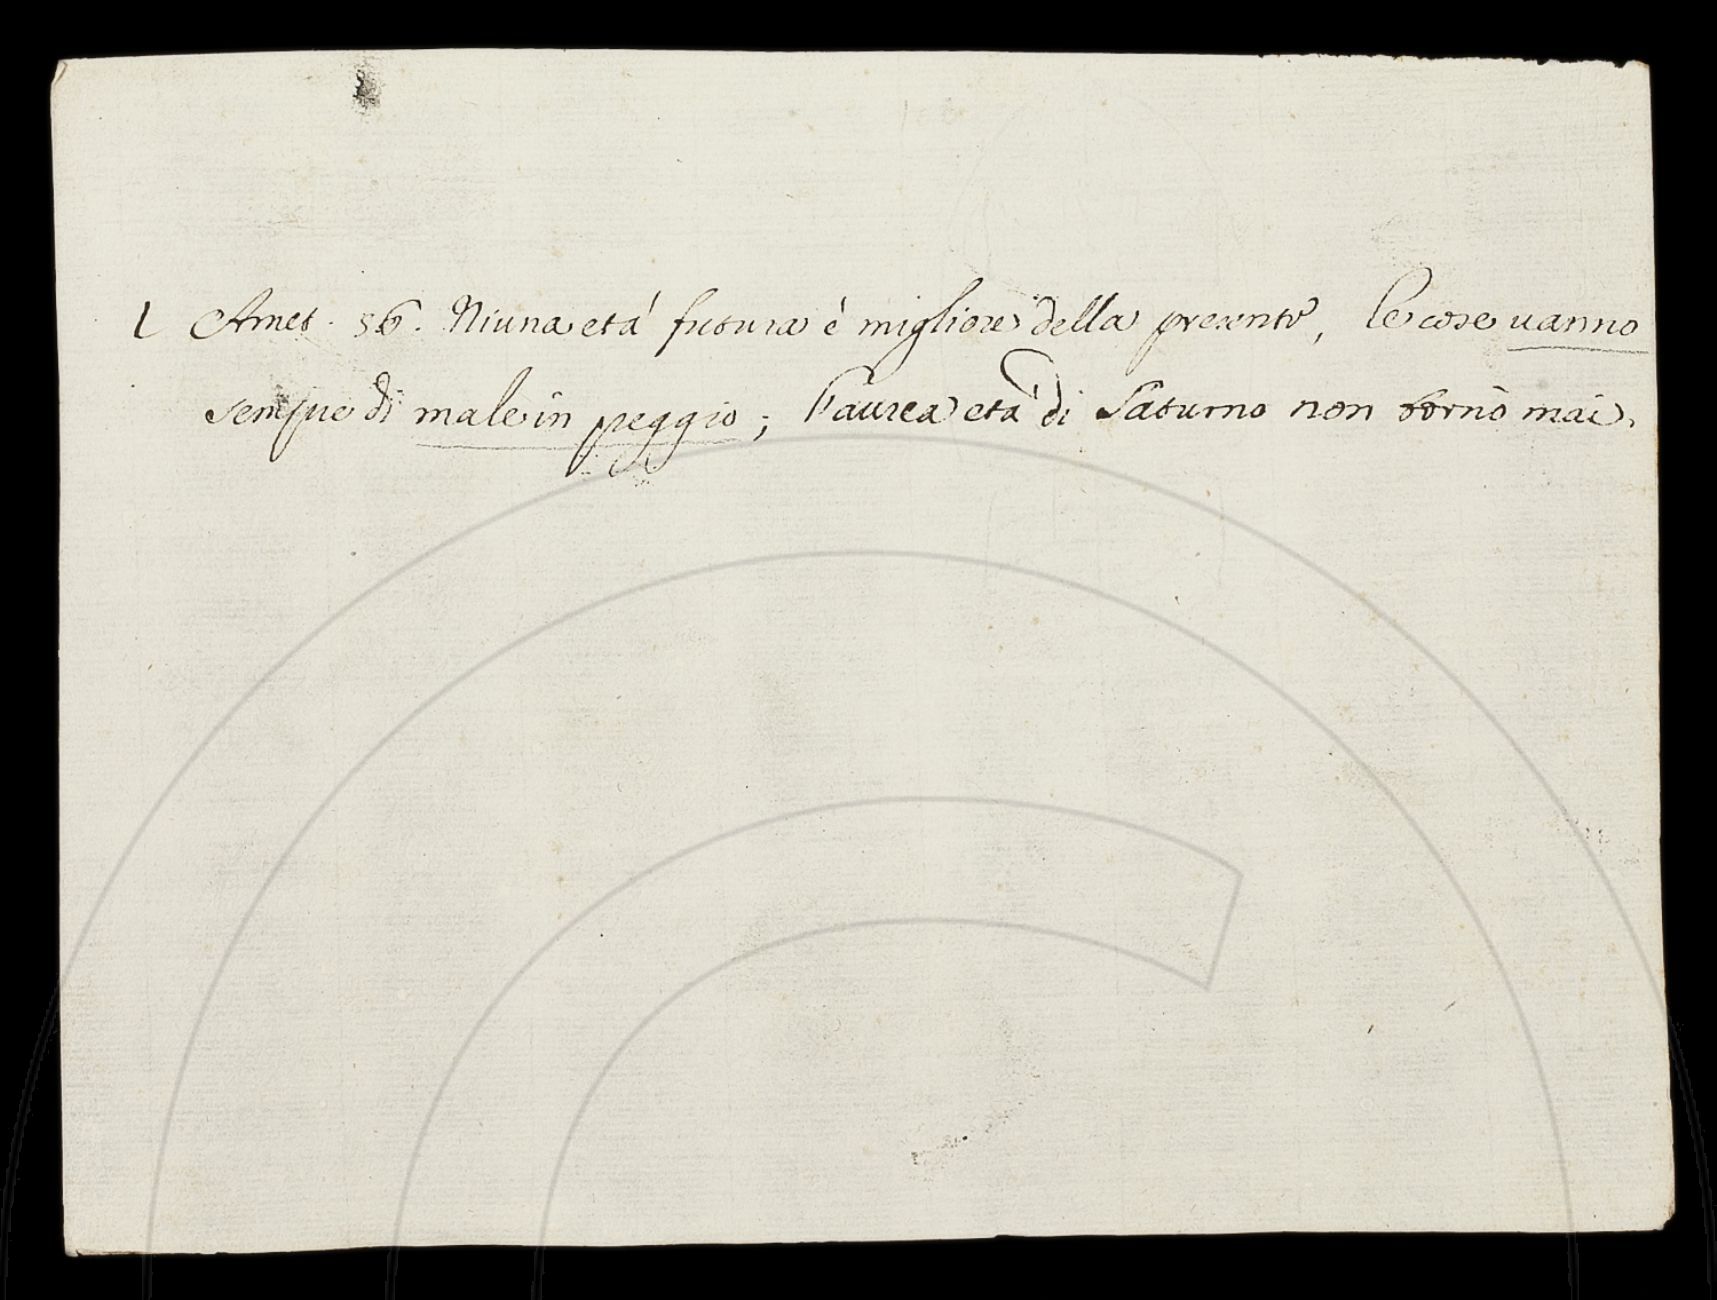 l Amet. 56. Niuna etá futura è migliore della presente, le cose uanno
sempre di male in peggio; l'aurea etá di Saturno non tornò mai.